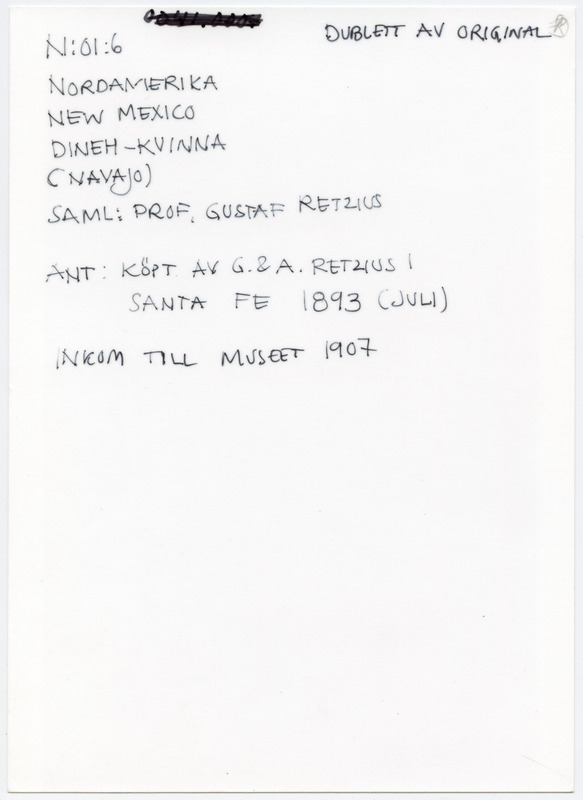 DUBLETT AV ORIGINAL
N:01:6
NORDAMERIKA
NEW MEXICO
DINEH-KVINNA
(NAVAJO)
SAML: PROF. GUSTAF RETZIUS
ANT: KÖPT AV G. & A. RETZIUS I
SANTA FE 1893 (JULI)
INKOM TILL MUSEET 1907